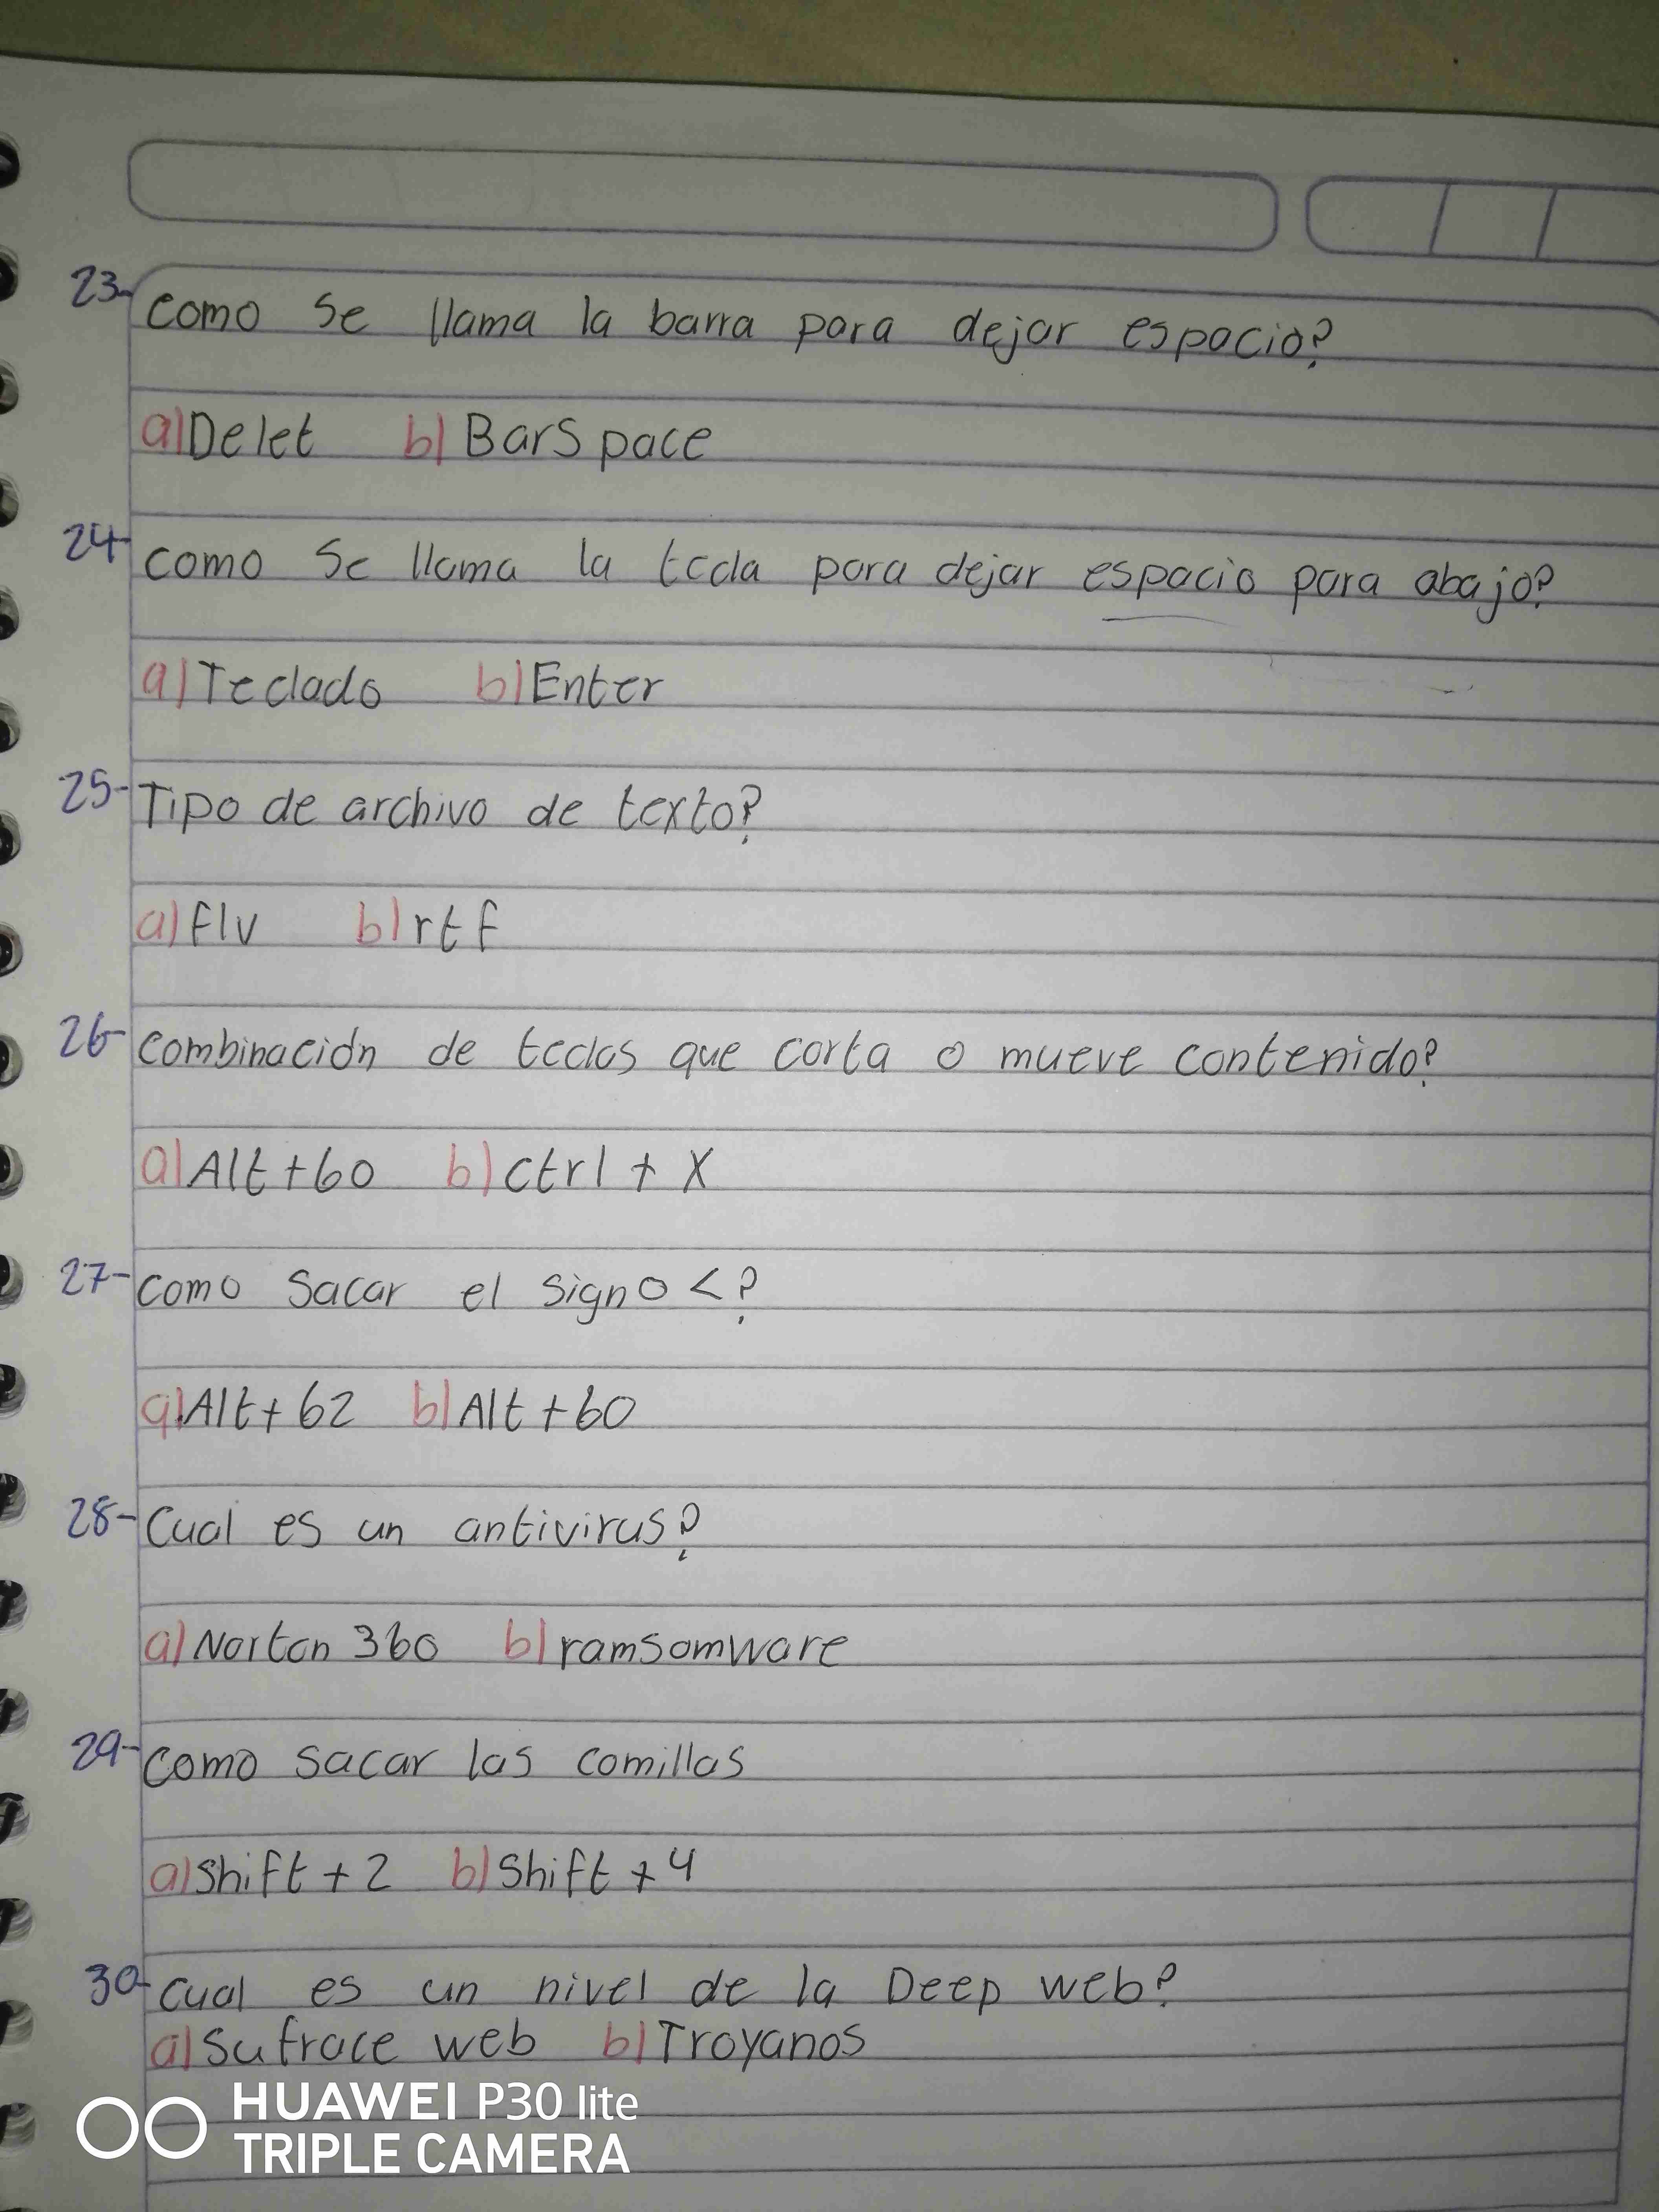 23- Como se llama la barra para dejar espacio?
a) Delet b) BarSpace
24- Como se llama la tecla para dejar espacio para abajo?
a) Teclado b) Enter
25- Tipo de archivo de texto?
a) flv b) rtf
26- Combinación de teclas que corta o mueve contenido?
a) Alt+60 b) ctrl + X
27- Como Sacar el signo <?
a) Alt+62 b) Alt+60
28- Cual es un antivirus?
a) Norton 360 b) ramsomware
29- Como sacar las comillas
a) Shift + 2 b) Shift + 4
30- Cual es un nivel de la Deep web?
a) Sufrace web b) Troyanos
HUAWEI P30 lite
TRIPLE CAMERA